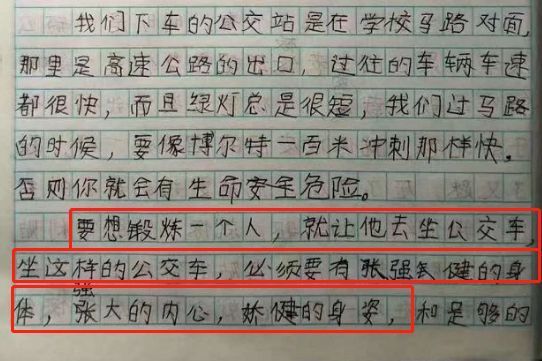 我们下车的公交站是在学校马路对面,
那里是高速公路的出口，过往的车辆车速
都很快，而且绿灯总是很短，我们过马路
的时候，要像博尔特一百米冲刺那样快。
否则你就会有生命安全危险。
要想锻炼一个人，就让他去坐公交车,
坐这样的公交车，必须要有强健的身
强
体，张大的内心，娇健的身姿，和足够的